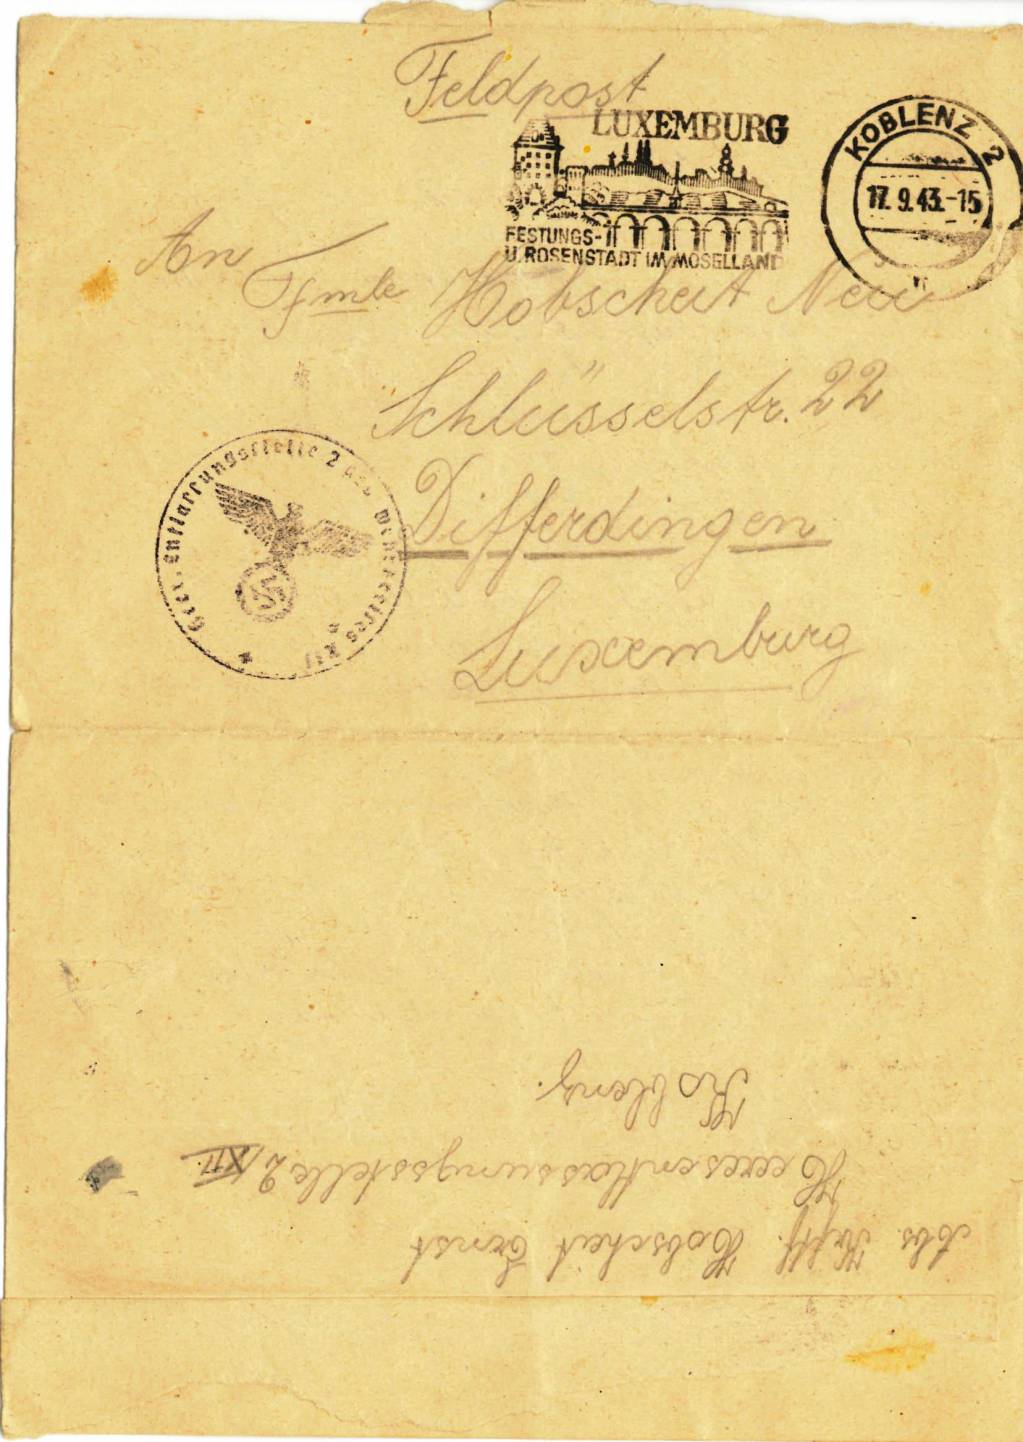 Feldpost
LUXEMBURG
FESTUNGS-
U. ROSENSTADT IM MOSELLAND
KOBLENZ 2
17.9.43.-15
n
An
Fmle Hobscheit Neu
Schlüsselstr. 22
Differdingen
Luxemburg
Heer. Entlassungsstelle 2 des Wehrkreises XII
Abs. Hobscheit Ernst
Heeresentlassungsstelle 2/XII
Koblenz.